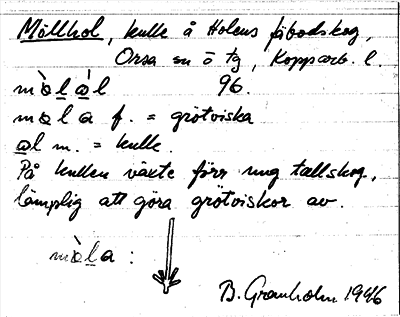 Mållhol, kulle å Holens fäbodskog,
Orsa sn ö tg, Kopparb. l.
mòlàl 96.
mola f. = grötviska
ål m. = kulle.
På kullen växte förr ung tallskog,
lämplig att göra grötviskor av.
mòla :
B. Granholm 1946